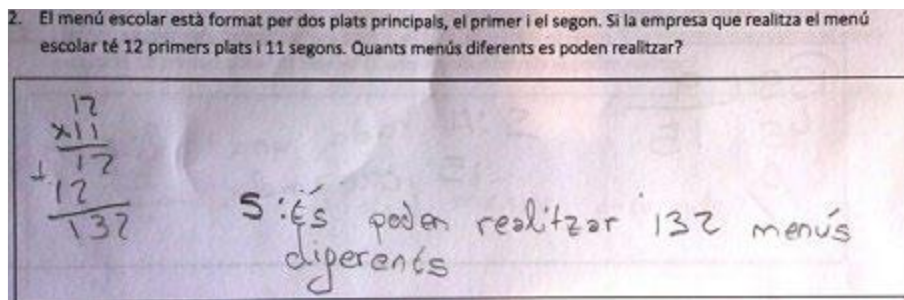 2. El menú escolar està format per dos plats principals, el primer i el segon. Si la empresa que realitza el menú
escolar té 12 primers plats i 11 segons. Quants menús diferents es poden realitzar?
12
x11
12
+
12
132
S: És poden realitzar 132 menús
diferents